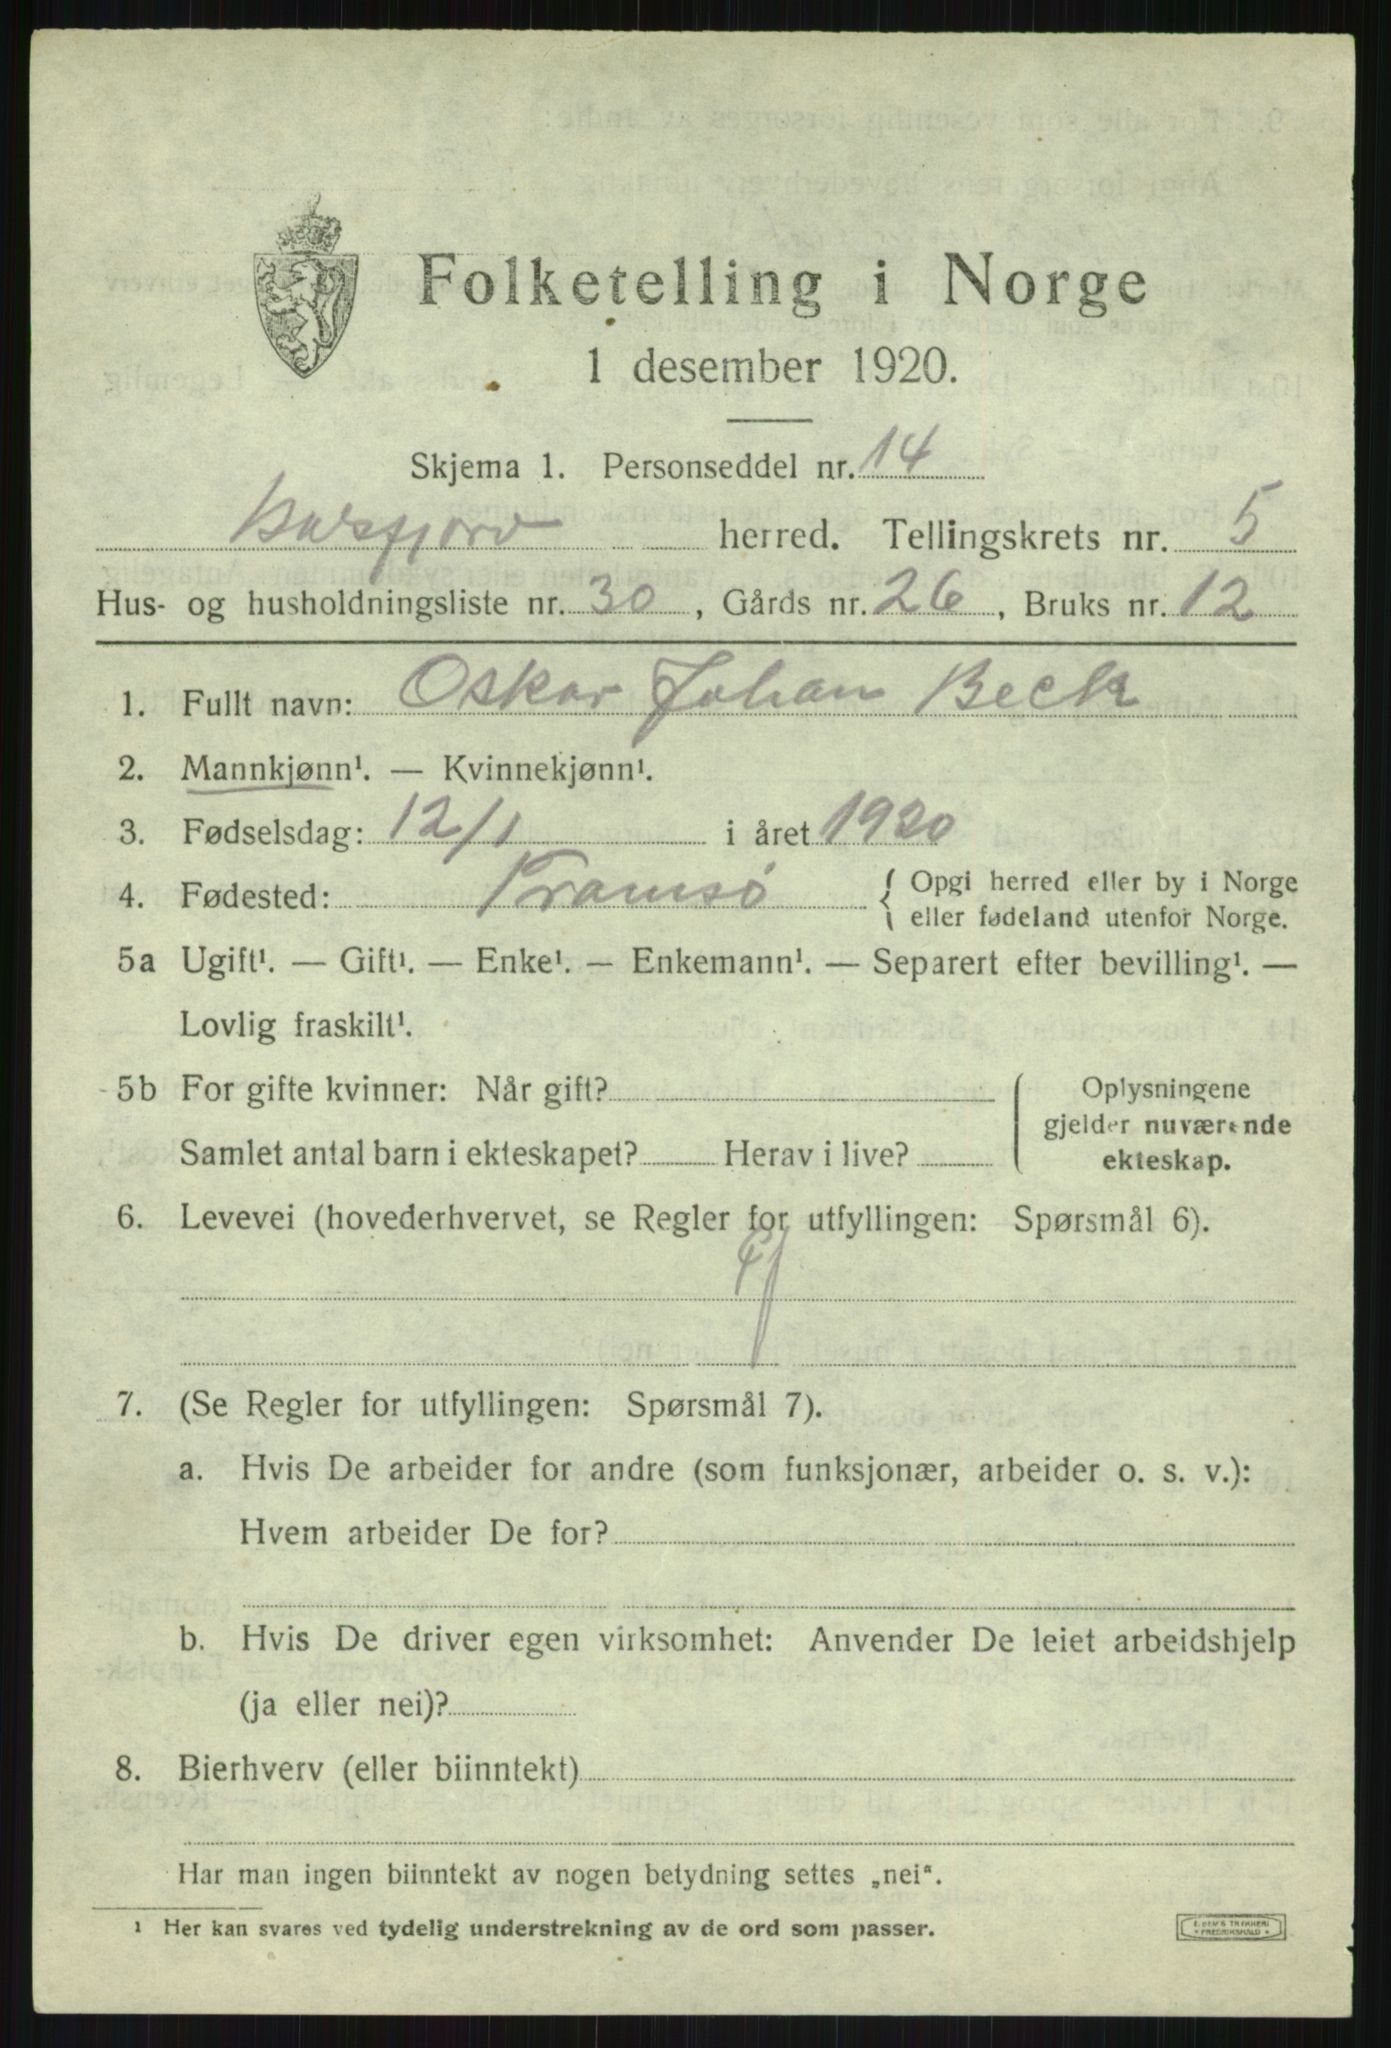 Folketelling i Norge
1 desember 1920.
Skjema 1. Personseddel nr. 14
herred. Tellingskrets nr. 5
Hus- og husholdningsliste nr. 30, Gårds nr. 26, Bruks nr. 12
1. Fullt navn: Oskar Johan Beck
2. Mannkjønn¹. — Kvinnekjønn¹.
3. Fødselsdag: 12/1 i året 1920
4. Fødested: Tromsø { Opgi herred eller by i Norge
eller fødeland utenfor Norge.
5a Ugift¹. — Gift¹. — Enke¹. — Enkemann¹. — Separert efter bevilling¹. —
Lovlig fraskilt¹.
5b For gifte kvinner: Når gift?
Samlet antal barn i ekteskapet? Herav i live?
( Oplysningene
gjelder nuværende
ekteskap.
6. Levevei (hovederhvervet, se Regler for utfyllingen: Spørsmål 6).
7. (Se Regler for utfyllingen: Spørsmål 7).
a. Hvis De arbeider for andre (som funksjonær, arbeider o. s. v.):
Hvem arbeider De for?
b. Hvis De driver egen virksomhet: Anvender De leiet arbeidshjelp
(ja eller nei)?
8. Bierhverv (eller biinntekt)
Har man ingen biinntekt av nogen betydning settes „nei“.
¹ Her kan svares ved tydelig understrekning av de ord som passer.
FREDRIKSHALD